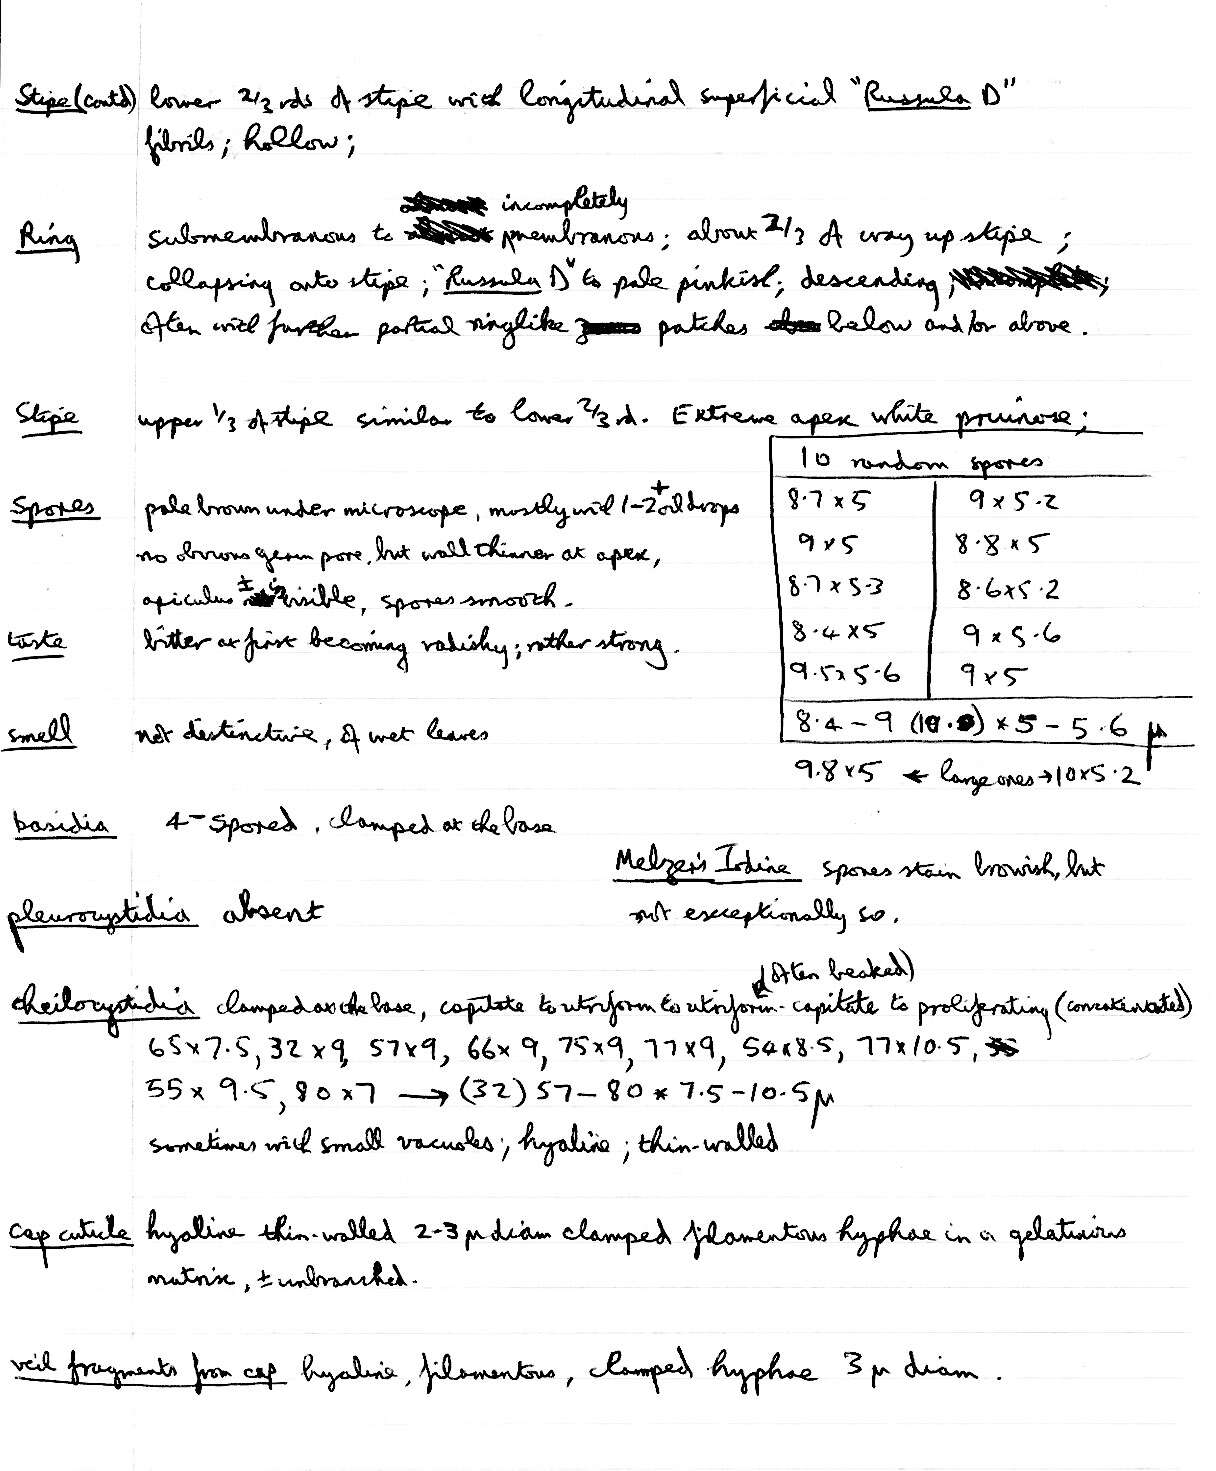 Stipe (contd) lower 2/3 rds of stipe with longitudinal superficial "Russula D"
fibrils; hollow;
incompletely
Ring submembranous to membranous; about 2/3 of way up stipe;
collapsing onto stipe; "Russula D" to pale pinkish; descending;
often with further partial ringlike patches below and/or above.
Stipe upper 1/3 of stipe similar to lower 2/3 rd. Extreme apex white pruinose;
10 random spores
Spores pale brown under microscope, mostly with 1-2+ oil drops
no obvious germ pore, but wall thinner at apex,
apiculus ± visible, spores smooth.
8.7 x 5 9 x 5.2
9 x 5 8.8 x 5
8.7 x 5.3 8.6 x 5.2
8.4 x 5 9 x 5.6
9.5 x 5.6 9 x 5
8.4 - 9 (10.0) x 5 - 5.6 µ
9.8 x 5 ← large ones → 10 x 5.2
taste bitter at first becoming radishy; rather strong.
smell not distinctive, of wet leaves
basidia 4-spored, clamped at the base
Melzer's Iodine spores stain browish, but
not exceptionally so.
pleurocystidia absent
(often beaked)
cheilocystidia clamped at the base, capitate to utriform to utriform-capitate to proliferating (concatenated)
65 x 7.5, 32 x 9, 57 x 9, 66 x 9, 75 x 9, 77 x 9, 54 x 8.5, 77 x 10.5,
55 x 9.5, 80 x 7 → (32) 57 - 80 x 7.5 - 10.5 µ
sometimes with small vacuoles; hyaline; thin-walled
cap cuticle hyaline thin-walled 2-3 µ diam clamped filamentous hyphae in a gelatinous
matrix, ± unbranched.
veil fragments from cap hyaline, filamentous, clamped hyphae 3 µ diam.